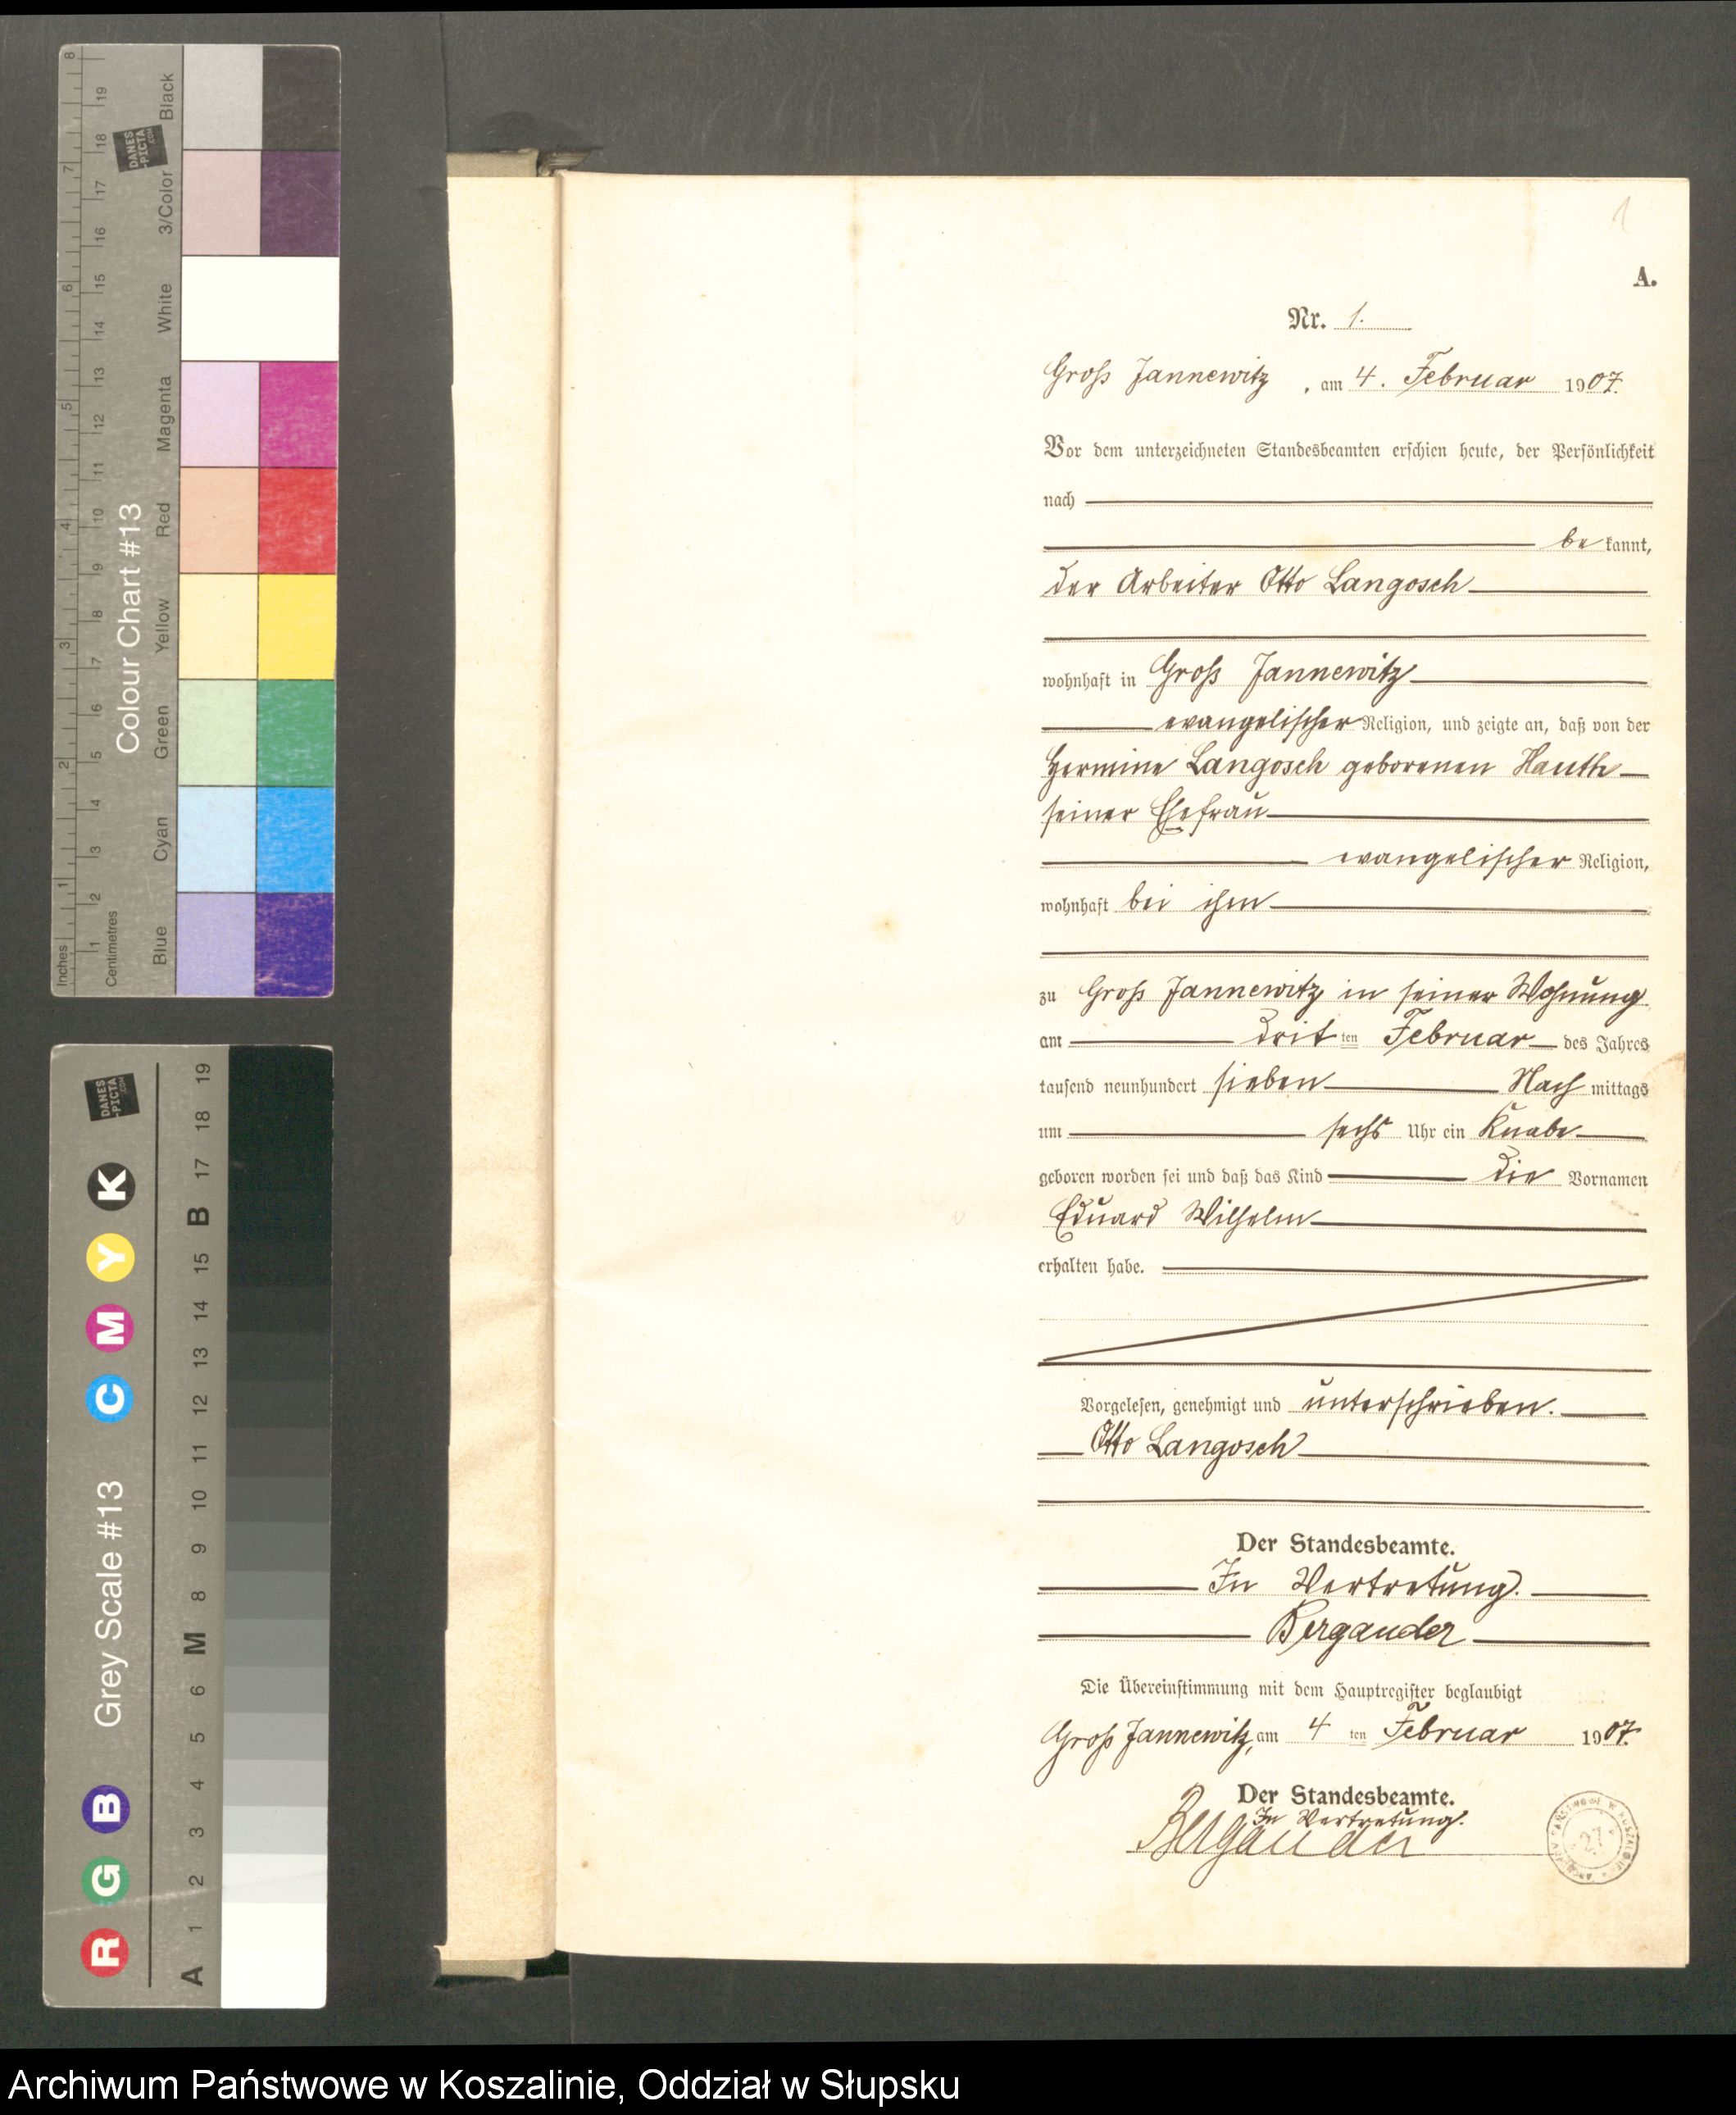 1
A.
Nr. 1.
Groß Jannewitz, am 4. Februar 1907.
Vor dem unterzeichneten Standesbeamten erschien heute, der Persönlichkeit
nach
be kannt,
der Arbeiter Otto Langosch
wohnhaft in Groß Jannewitz
evangelischer Religion, und zeigte an, daß von der
Hermine Langosch geborenen Hauth
seiner Ehefrau
evangelischer Religion,
wohnhaft bei ihm
zu Groß Jannewitz in seiner Wohnung
am drit ten Februar des Jahres
tausend neunhundert sieben Nach mittags
um sechs Uhr ein Knabe
geboren worden sei und daß das Kind die Vornamen
Eduard Wilhelm
erhalten habe.
Vorgelesen, genehmigt und unterschrieben.
Otto Langosch
Der Standesbeamte.
In Vertretung.
Bergander
Die Übereinstimmung mit dem Hauptregister beglaubigt
Groß Jannewitz, am 4 ten Februar 1907.
Der Standesbeamte.
In Vertretung.
Bergander
27
Inches 1 2 3 4 5 6 7 8
Centimetres 1 2 3 4 5 6 7 8 9 10 11 12 13 14 15 16 17 18 19
Colour Chart #13
DANES
-PICTA
.COM
Blue Cyan Green Yellow Red Magenta White 3/Color Black
Grey Scale #13
DANES
-PICTA
.COM
R G B C M Y K
A 1 2 3 4 5 6 M 8 9 10 11 12 13 14 15 B 17 18 19
Archiwum Państwowe w Koszalinie, Oddział w Słupsku